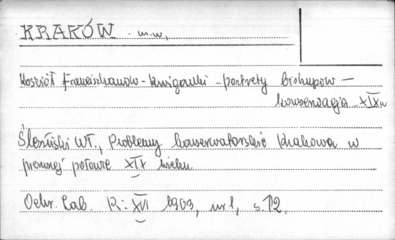 KRAKÓW m.w,
Kościół Franciszkanów - krużganki - portrety biskupów -
konserwacja - XIXw
Ślesiński Wł., Problemy konserwatorskie Krakowa w
pierwszej połowie XIX wieku.
Ochr. Zab. R: XVI 1963, nr 1, s. 12.